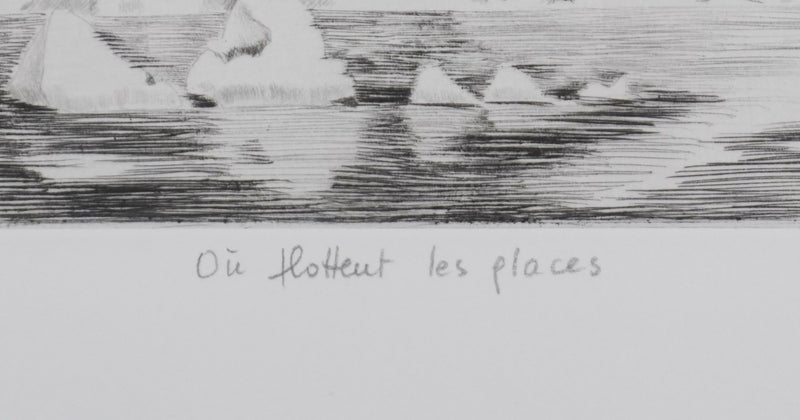 Où flottent les glaces